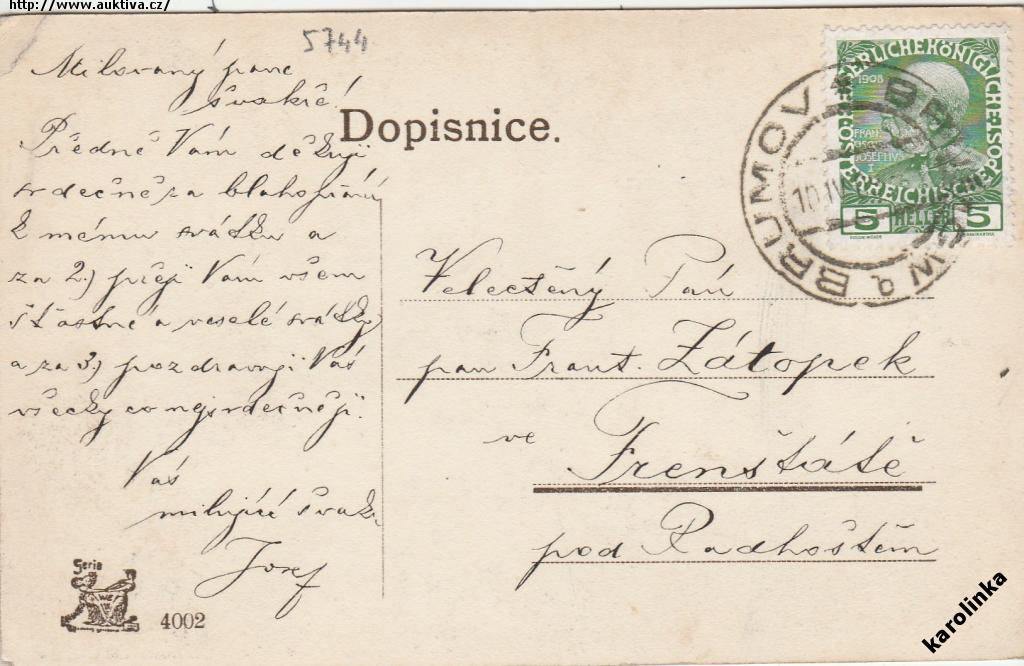 http://www.auktiva.cz/
5744
Milovaný pane
švakře!
Předně Vám děkuji
srdečně za blahopřání
k mému svátku a
za 2.) přeji Vám všem
šťastné a veselé svátky
a za 3.) pozdravuji Vás
všecky co nejsrdečněji.
Váš
milující švakr
Josef
Seria
4002
Dopisnice.
1908
FRANC
JOSEPHVS
I
5 HELLER 5
BRUMOV
10.IV
Velectěný Pán
pan Frant. Zátopek
ve
Frenštátě
pod Radhoštěm
karolinka